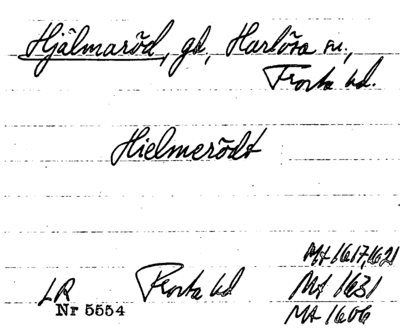 Hjälmaröd, gd, Harlösa sn.,
Frosta hd.
Hielmerödt
MA 1617, 1621
LR Frosta hd MA 1631
Nr 5554 MA 1606